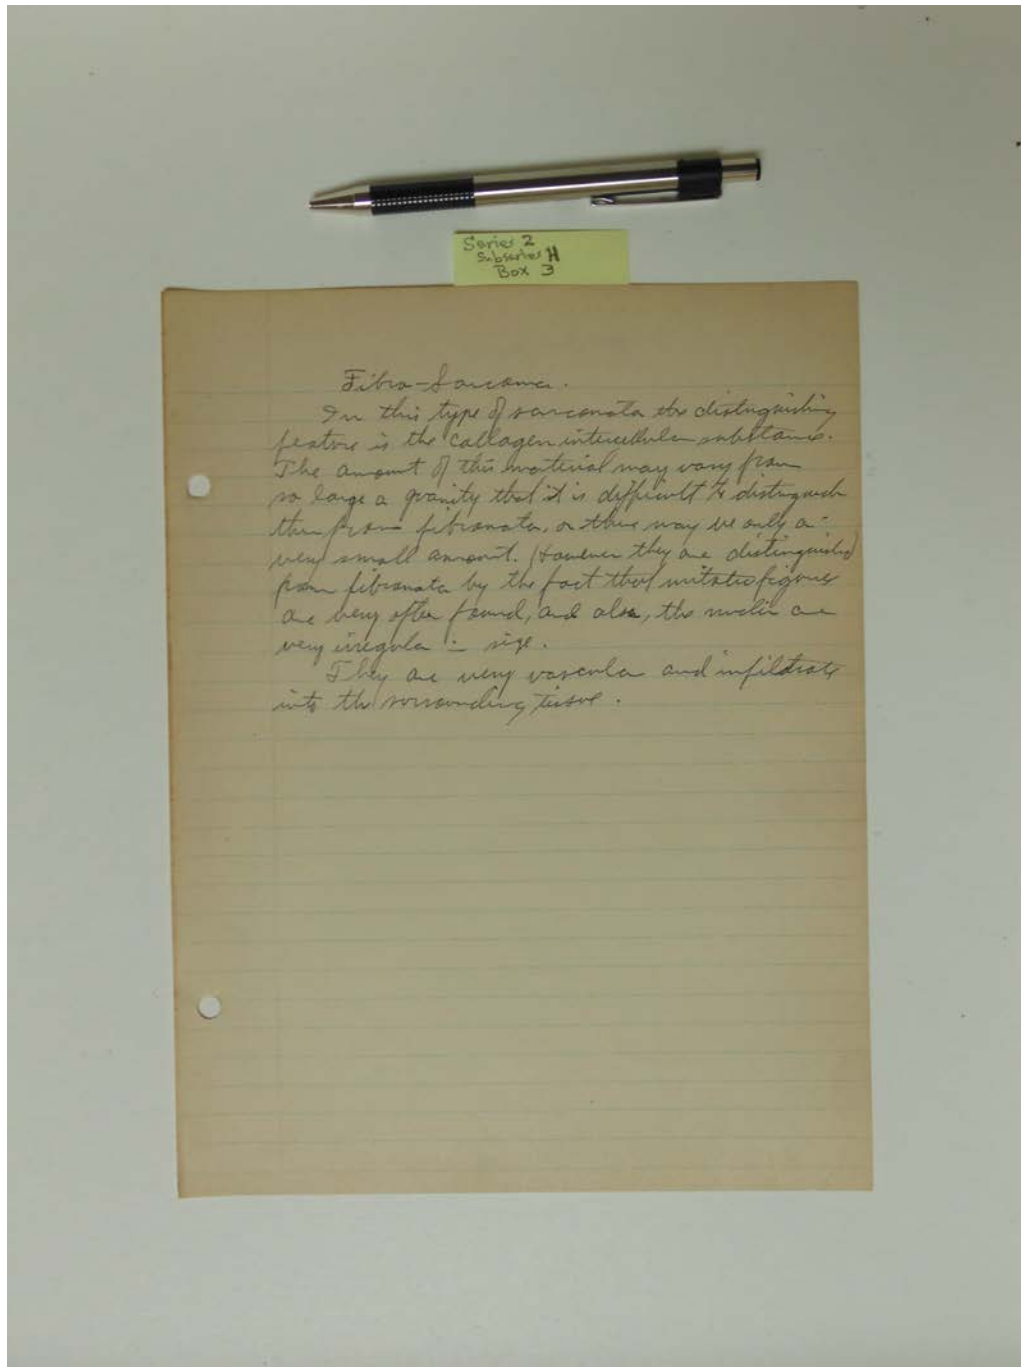 Series 2
Subseries H
Box 3
Fibro-Sarcoma.
In this type of sarcomata the distinguishing
feature is the collagen intercellular substance.
The amount of this material may vary from
so large a quanity that it is difficult to distinguish
them from fibromata, or there may be only a
very small amount. However they are distinguished
from fibromata by the fact that mitotic figures
are very often found, and also, the nuclei are
very irregular in size.
They are very vascular and infiltrate
into the surrounding tissue.